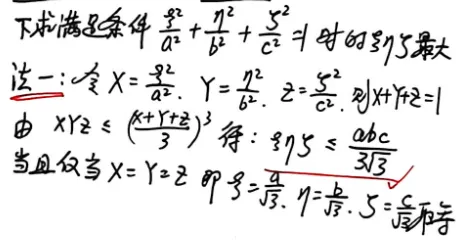 下求满足条件 ξ²/a² + η²/b² + ζ²/c² = 1 时的ξηζ最大
法一:令 X = ξ²/a². Y = η²/b². Z = ζ²/c². 则X+Y+Z=1
由 XYZ ≤ ((X+Y+Z)/3)³ 得: ξηζ ≤ abc/(3√3)
当且仅当 X = Y = Z 即 ξ = a/√3. η = b/√3. ζ = c/√3 取等